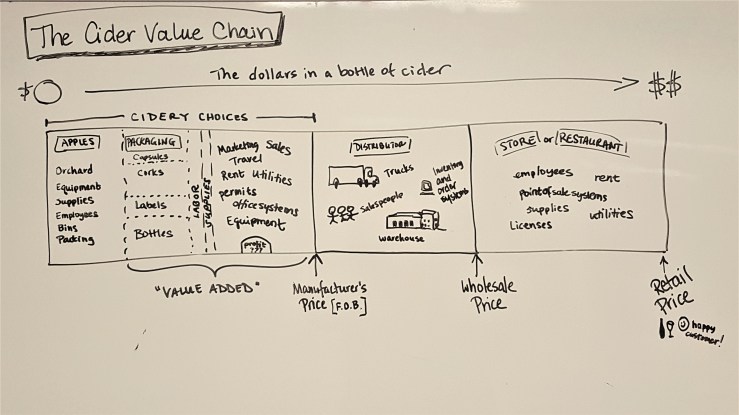 The Cider Value Chain
The dollars in a bottle of cider
$0
$$
CIDERY CHOICES
APPLES
Orchard
Equipment
Supplies
Employees
Bins
Packing
PACKAGING
Capsules
Corks
Labels
Bottles
LABOR
SUPPLIES
Marketing Sales
Travel
Rent Utilities
permits
office systems
Equipment
profit
???
DISTRIBUTOR
Trucks
Salespeople
Inventory
and
order
systems
warehouse
STORE or RESTAURANT
employees rent
point of sale systems
supplies
utilities
Licenses
"VALUE ADDED"
Manufacturer's
Price [F.O.B.]
Wholesale
Price
Retail
Price
happy
customer!